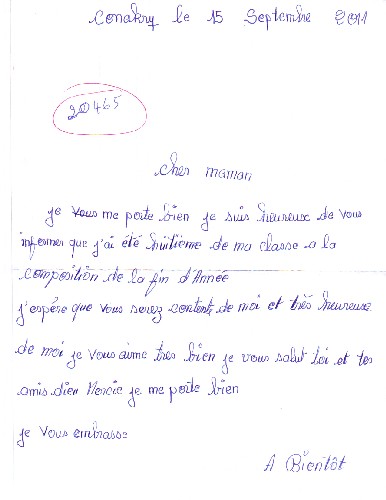 Conakry le 15 Septembre 2011
20465
cher maman
je vous me porte bien je suis heureux de vous
informer que j'ai été huitième de ma classe a la
composition de la fin d'Année
j'espére que vous serez content de moi et très heureuse
de moi je vous aime tres bien je vous salut toi et tes
amis dieu Mercie je me porte bien
je vous embrasse
A Bientôt